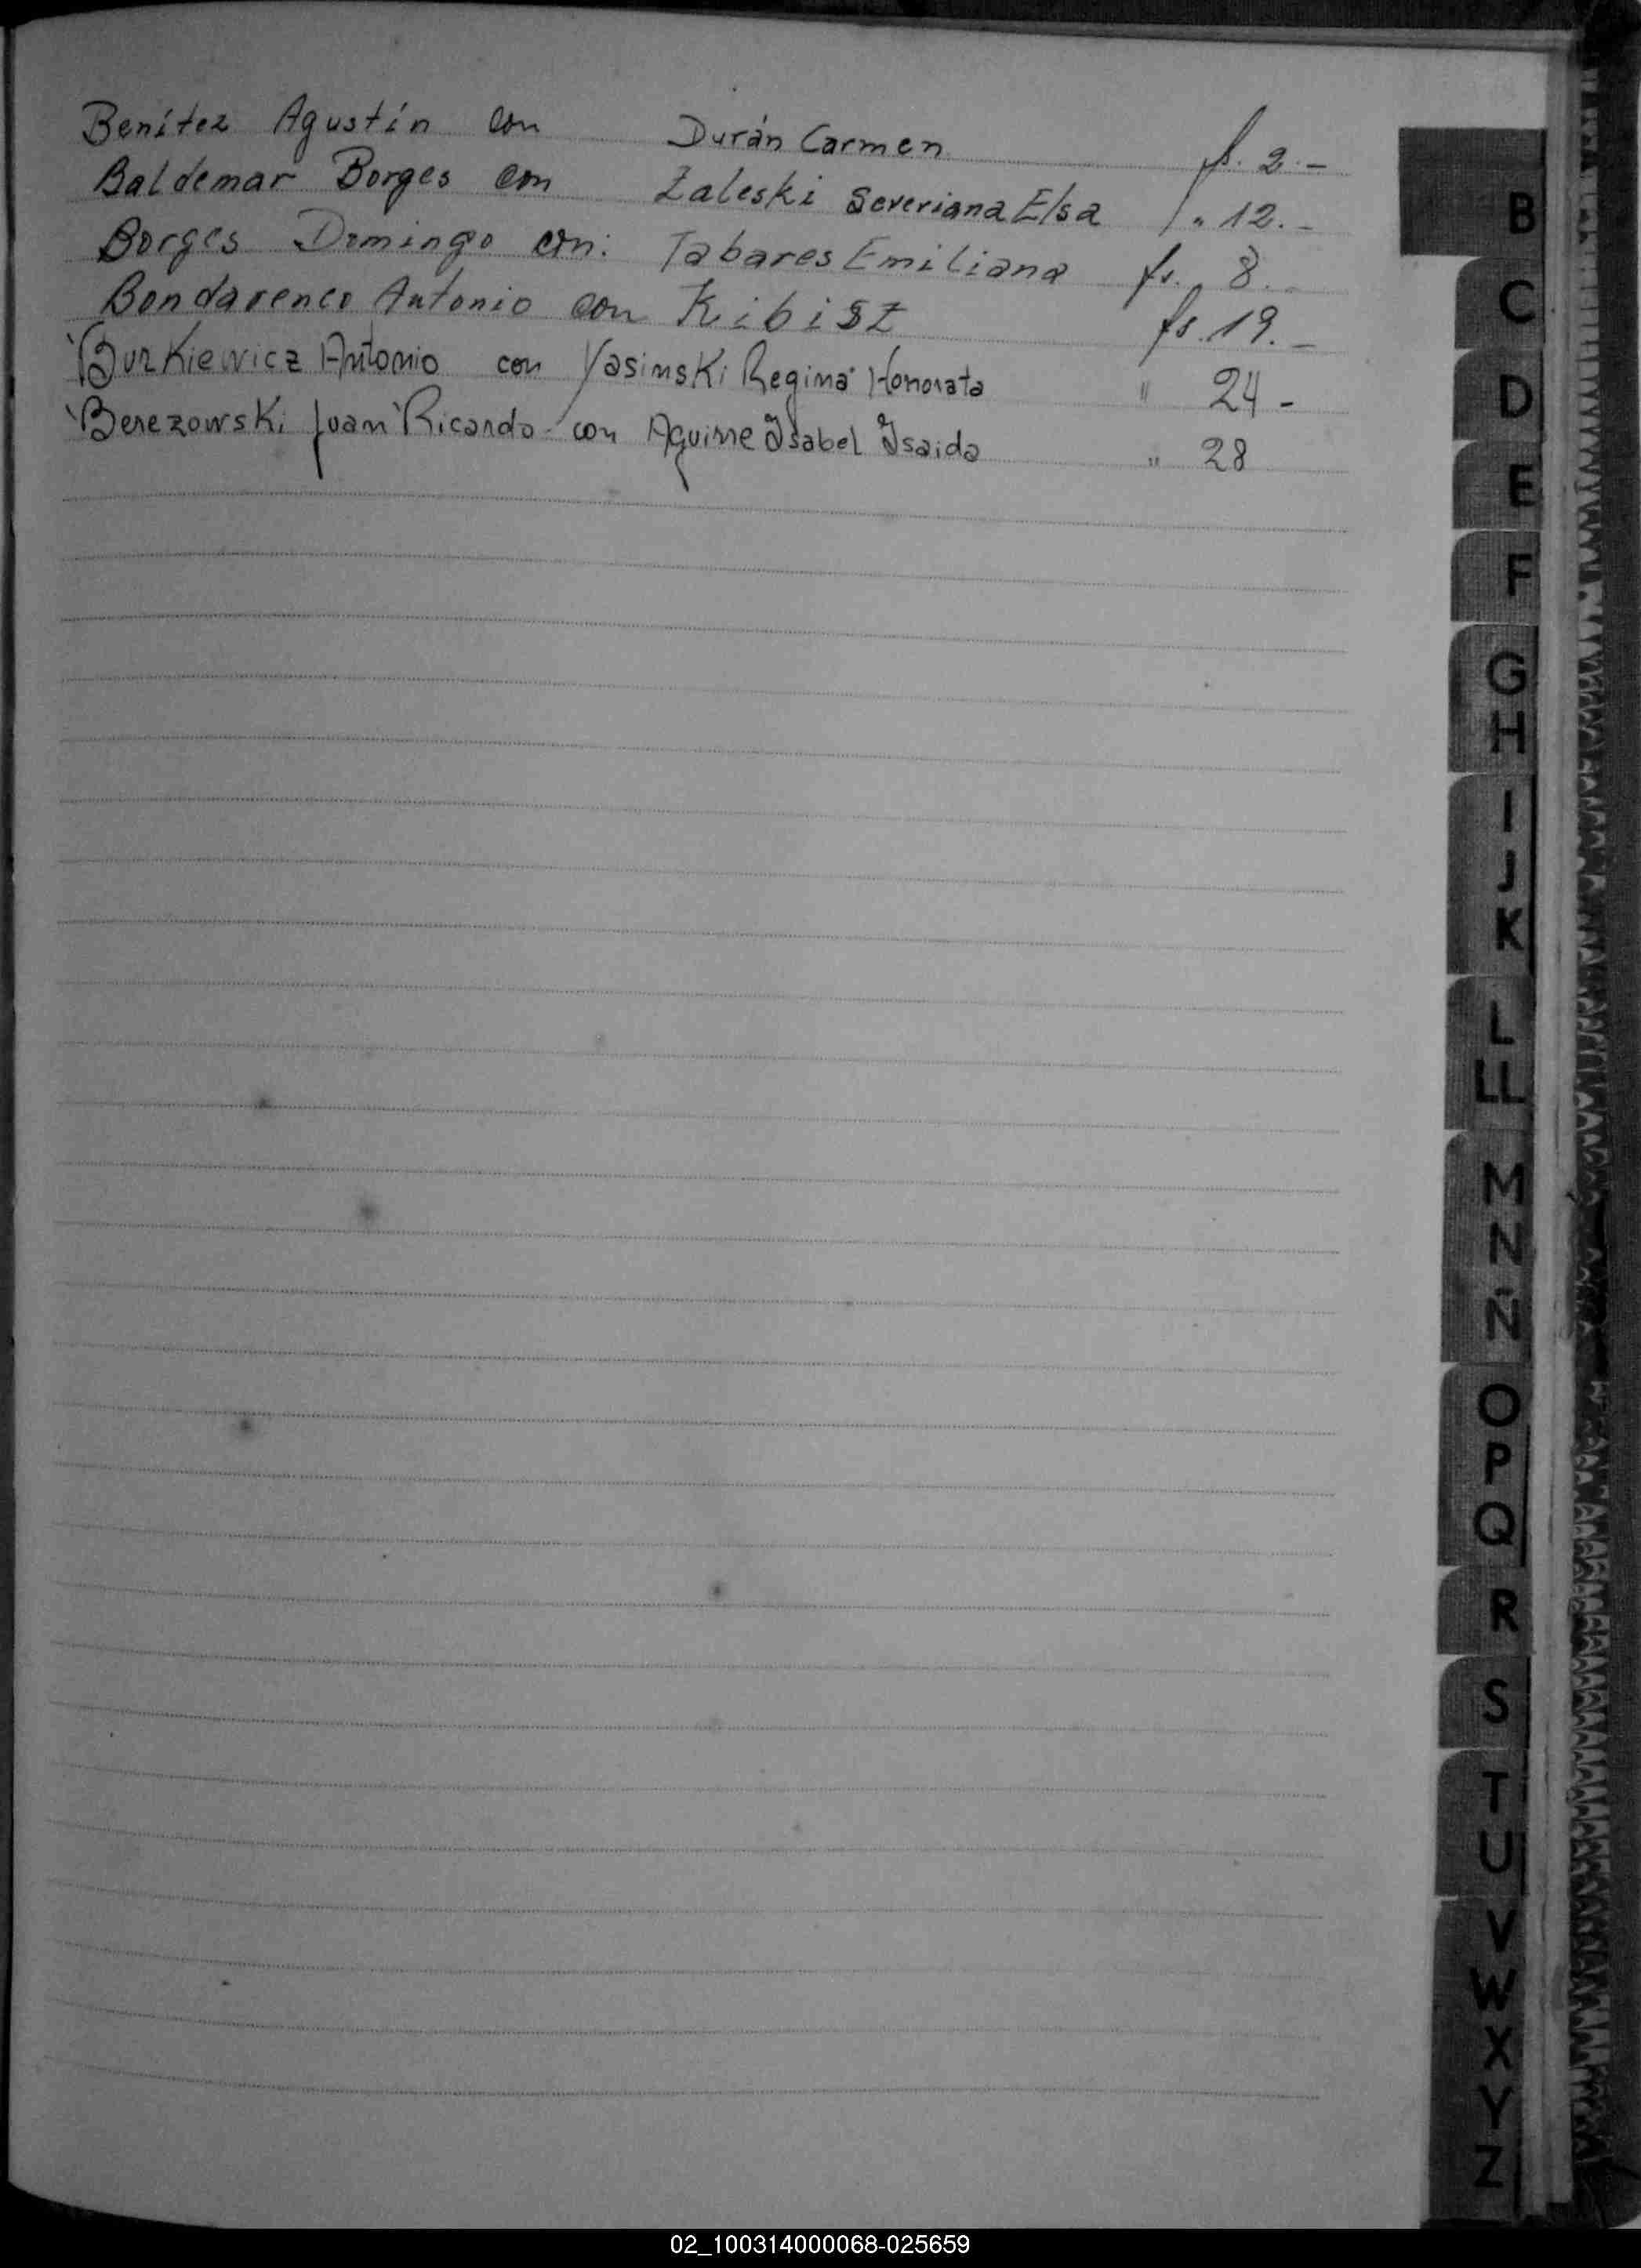 Benítez Agustín con Durán Carmen fs. 2.-
Baldemar Borges con Zaleski Severiana Elsa /" 12.-
Borges Domingo con: Tabares Emiliana fs. 8.-
Bondarenco Antonio con Kibisz fs. 19.-
Burkiewicz Antonio con Yasinski Regina Honorata " 24-
Berezowski Juan Ricardo - con Aguirre Isabel Isaida " 28
B
C
D
E
F
G
H
I
J
K
L
LL
M
N
Ñ
O
P
Q
R
S
T
U
V
W
X
Y
Z
02_100314000068-025659